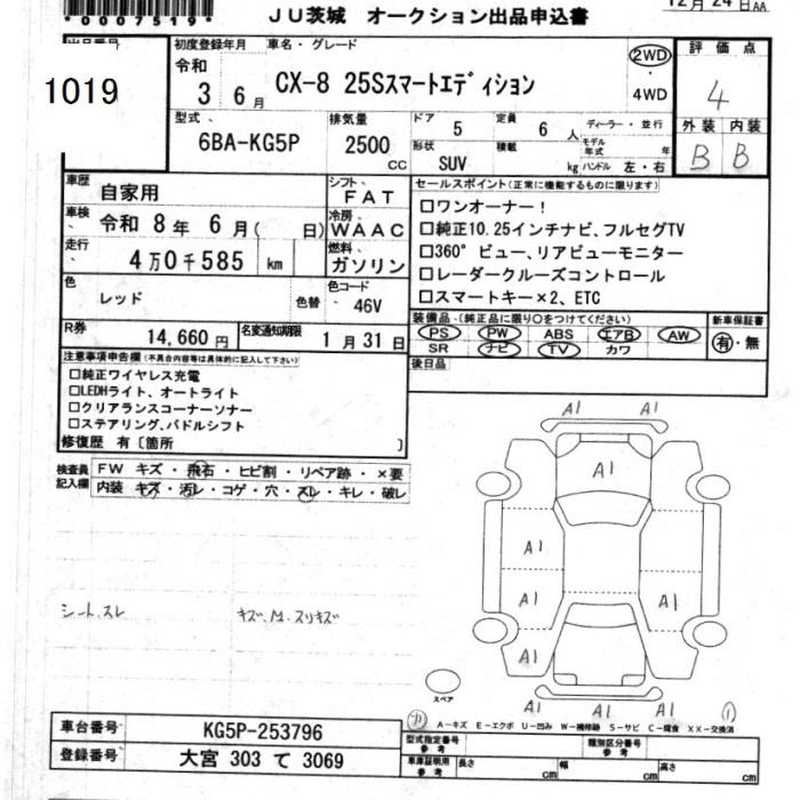 *0007519*
JU茨城 オークション出品申込書
12月24日AA
出品番号
1019
初度登録年月
令和
3 6月
車名・グレード
CX-8 25Sスマートエディション
2WD
・
4WD
評価点
4
外装 内装
B B
型式
6BA-KG5P
排気量
2500
CC
ドア 5 定員 6 人
形状 SUV 積載 kg
ディーラー・並行
モデル年式 年
ハンドル 左・右
車歴 自家用
シフト FAT
車検 令和 8年 6月( 日)
冷房 WAAC
走行 4万0千585 km
燃料 ガソリン
色 レッド 色替
色コード 46V
R券 14,660円
名変通知期限 1月31日
セールスポイント(正常に機能するものに限ります)
□ワンオーナー!
□純正10.25インチナビ、フルセグTV
□360°ビュー、リアビューモニター
□レーダークルーズコントロール
□スマートキー×2、ETC
装備品(純正品に限り○をつけてください)
PS PW ABS エアB AW
SR ナビ TV カワ
新車保証書
有・無
後日品
注意事項申告欄(不具合内容等は具体的に記入して下さい)
□純正ワイヤレス充電
□LEDHライト、オートライト
□クリアランスコーナーソナー
□ステアリング、パドルシフト
修復歴 有〔箇所 〕
検査員記入欄
FW キズ・飛石・ヒビ割・リペア跡・×要
内装 キズ・汚レ・コゲ・穴・スレ・キレ・破レ
シートスレ
A1 A1
A1
A1
A1 A1
A1
A1 A1 A1
スペア
A-キズ E-エクボ U-凹み W-補修跡 S-サビ C-腐食 XX-交換済
車台番号 KG5P-253796
登録番号 大宮 303 て 3069
型式指定番号 参考
類別区分番号 参考
車庫証明用 参考 長さ cm 幅 cm 高さ cm